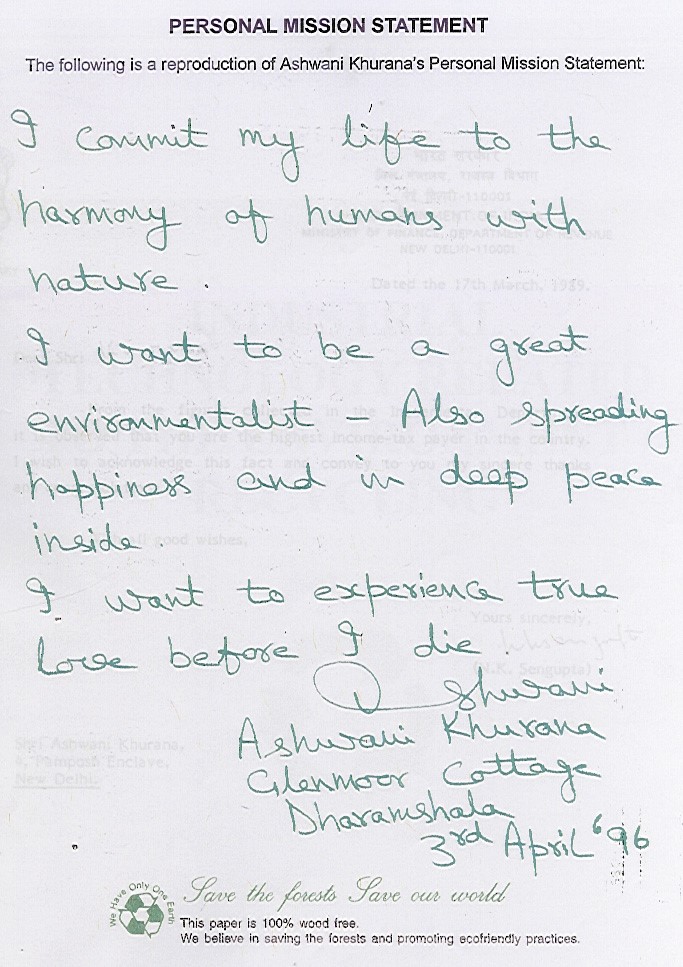 PERSONAL MISSION STATEMENT
The following is a reproduction of Ashwani Khurana's Personal Mission Statement:
I commit my life to the
harmony of humans with
nature.
I want to be a great
environmentalist – Also spreading
happiness and in deep peace
inside.
I want to experience true
love before I die
Ashwani
Ashwani Khurana
Glenmoor Cottage
Dharamshala
3rd April '96
भारत सरकार
NEW DELHI-110001
Dated the 17th March, 1989.
it is observed that you are the highest income-tax payer in the country.
I wish to acknowledge this fact and convey to you my sincere thanks
good wishes,
Yours sincerely,
(N.K. Sengupta)
Shri Ashwani Khurana,
4, Pamposh Enclave,
New Delhi.
We Have Only One Earth
Save the forests Save our world
This paper is 100% wood free.
We believe in saving the forests and promoting ecofriendly practices.